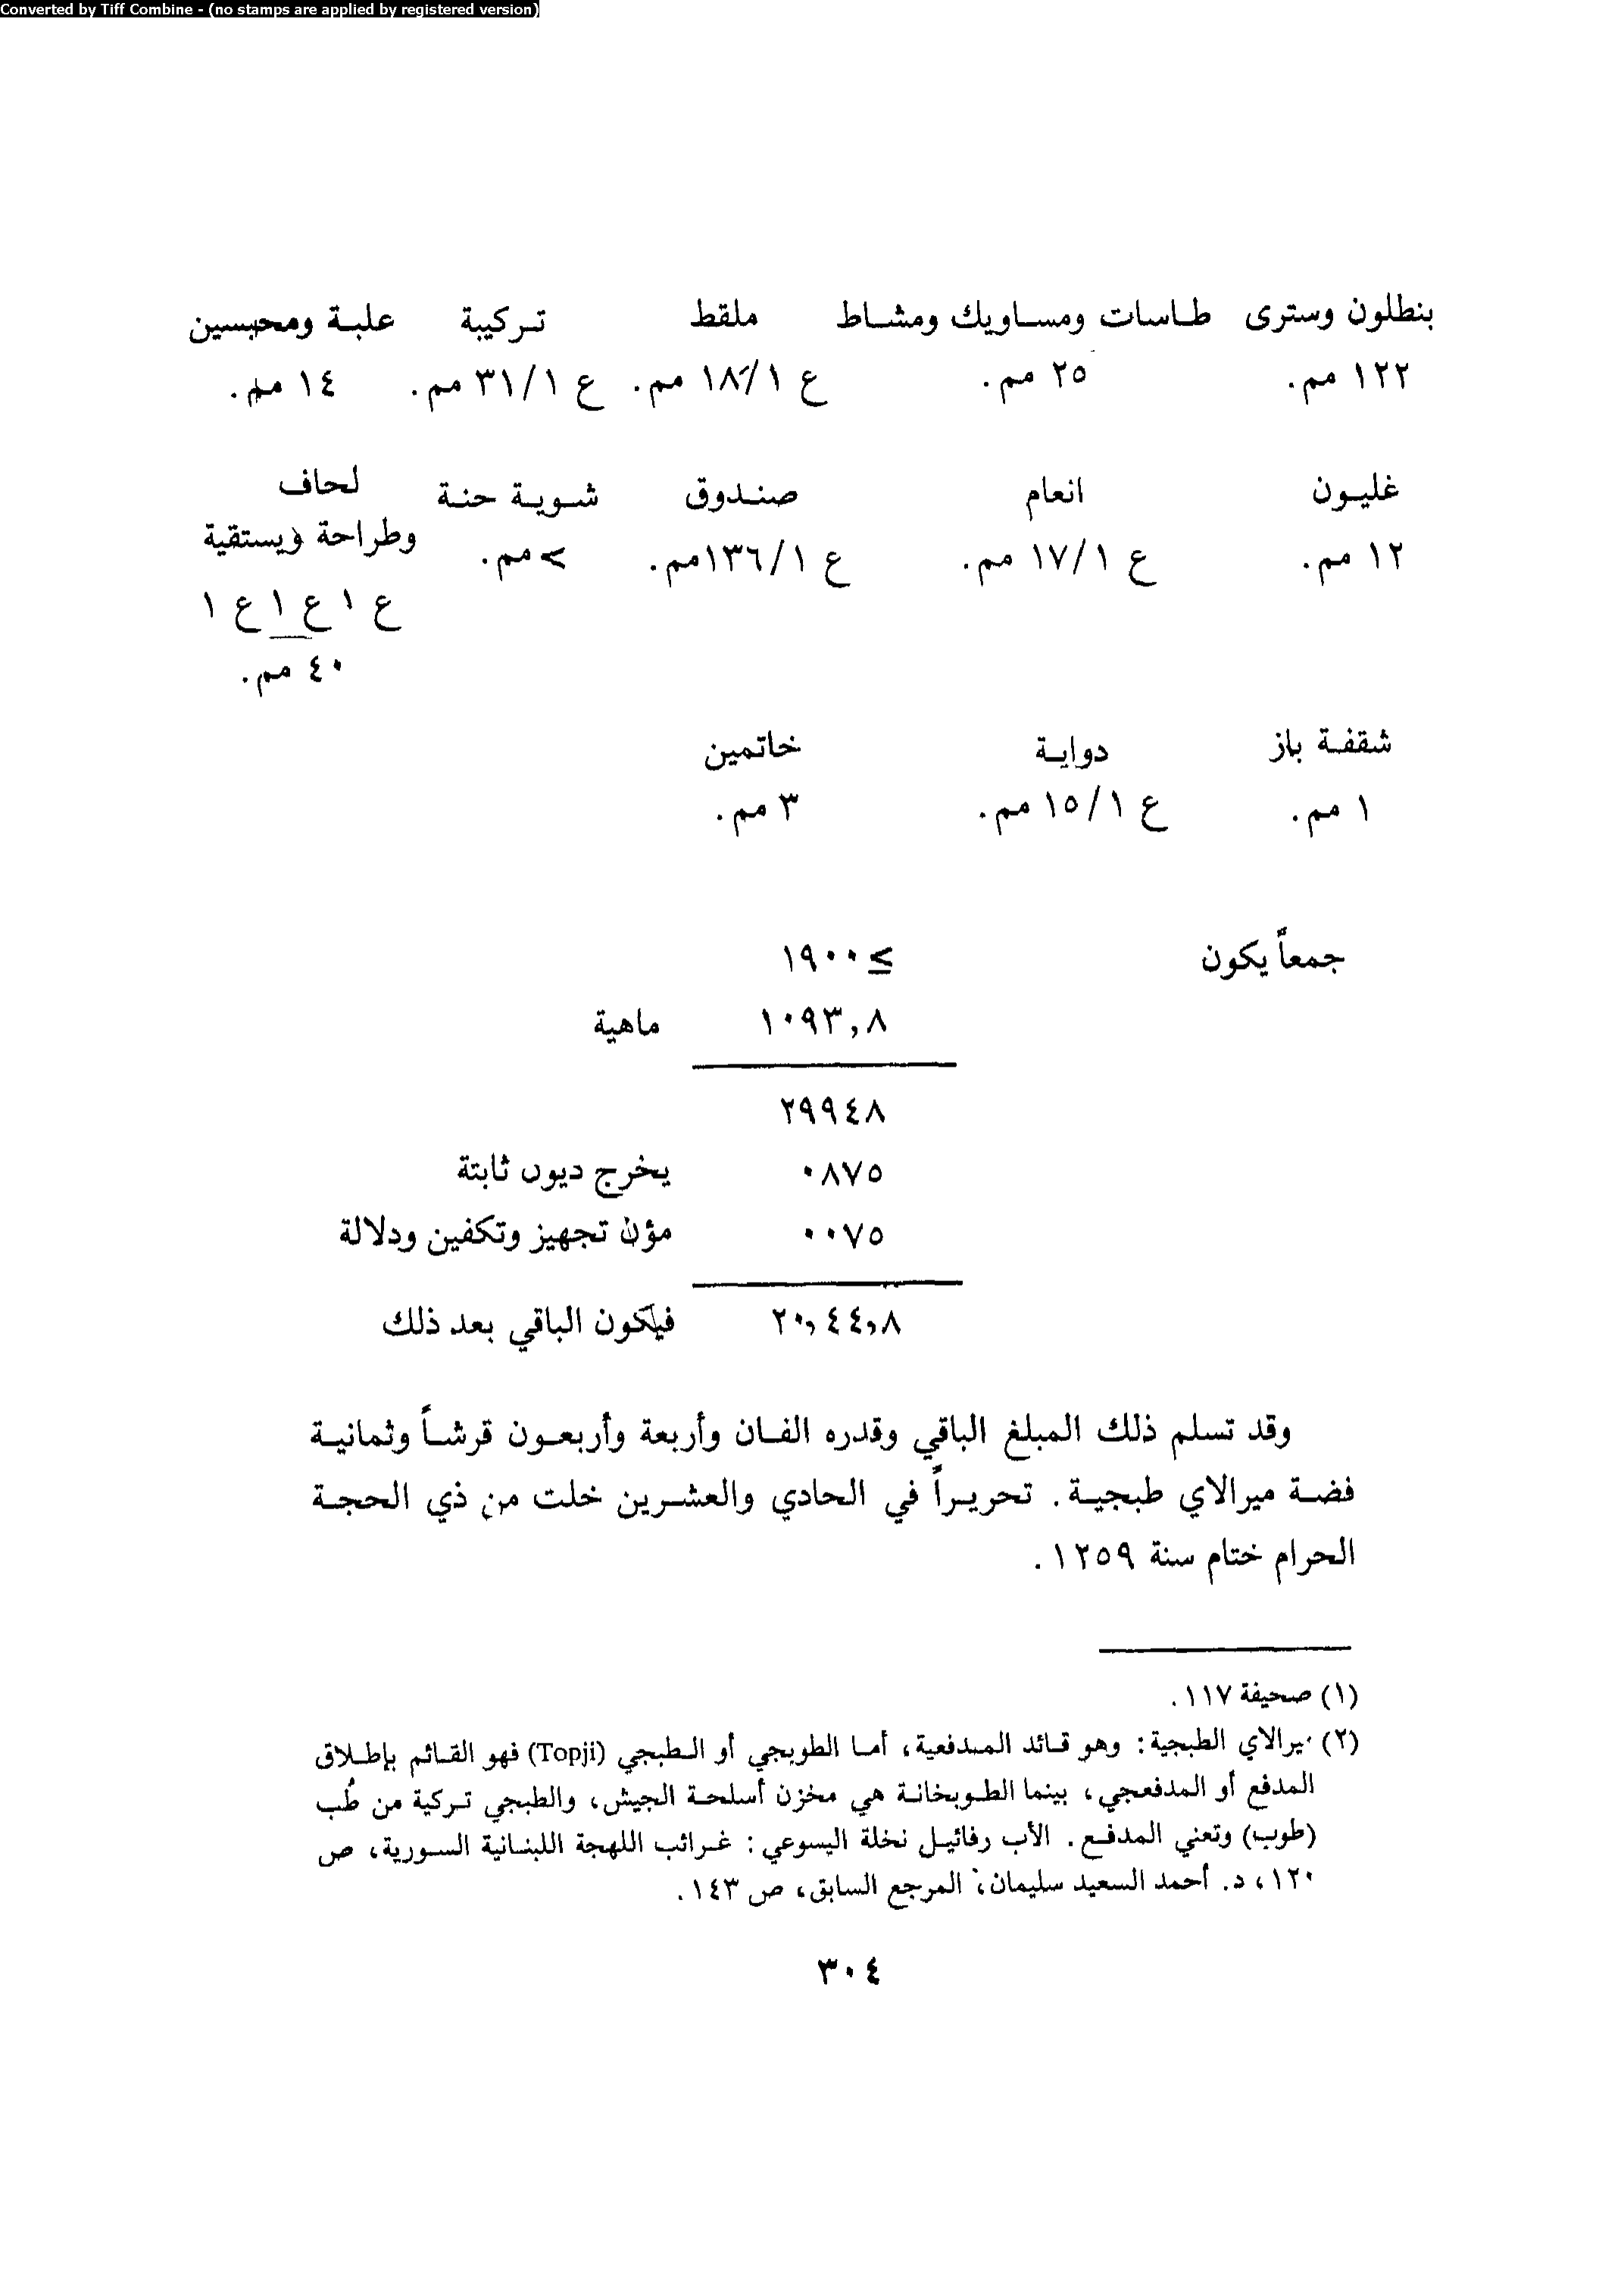 Converted by Tiff Combine - (no stamps are applied by registered version)
بنطلون وسترى طاسات ومساويك ومشاط ملقط تركيبة علبة ومحبسين
١٢٢ مم. ٢٥ مم. ع ١٨/١ مم. ع ٣١/١ مم. ١٤ مم.
غليون انعام صندوق شوية حنة لحاف
وطراحة ويستقية
١٢ مم. ع ١٧/١ مم. ع ١٣٦/١مم. > مم.
ع ١ ع ١ ع ١
٤٠ مم.
شقفة باز دواية خاتمين
١ مم. ع ١٥/١ مم. ٣ مم.
جمعاً يكون ١٩٠٠ ≥
١٠٩٣,٨ ماهية
٢٩٩٤٨
٠٨٧٥ يخرج ديون ثابتة
٠٠٧٥ مؤن تجهيز وتكفين ودلالة
٢٠,٤٤,٨ فيكون الباقي بعد ذلك
وقد تسلم ذلك المبلغ الباقي وقدره الفان وأربعة وأربعون قرشاً وثمانية
فضة ميرالاي طبجية. تحريراً في الحادي والعشرين خلت من ذي الحجة
الحرام ختام سنة ١٢٥٩.
(١) صحيفة ١١٧.
(٢) يرالاي الطبجية: وهو قائد المدفعية، أما الطوبجي أو الطبجي (Topji) فهو القائم بإطلاق
المدفع أو المدفعجي، بينما الطوبخانة هي مخزن أسلحة الجيش، والطبجي تركية من طُب
(طوب) وتعني المدفع. الأب رفائيل نخلة اليسوعي: غرائب اللهجة اللبنانية السورية، ص
١٢٠، د. أحمد السعيد سليمان، المرجع السابق، ص ١٤٣.
٣٠٤